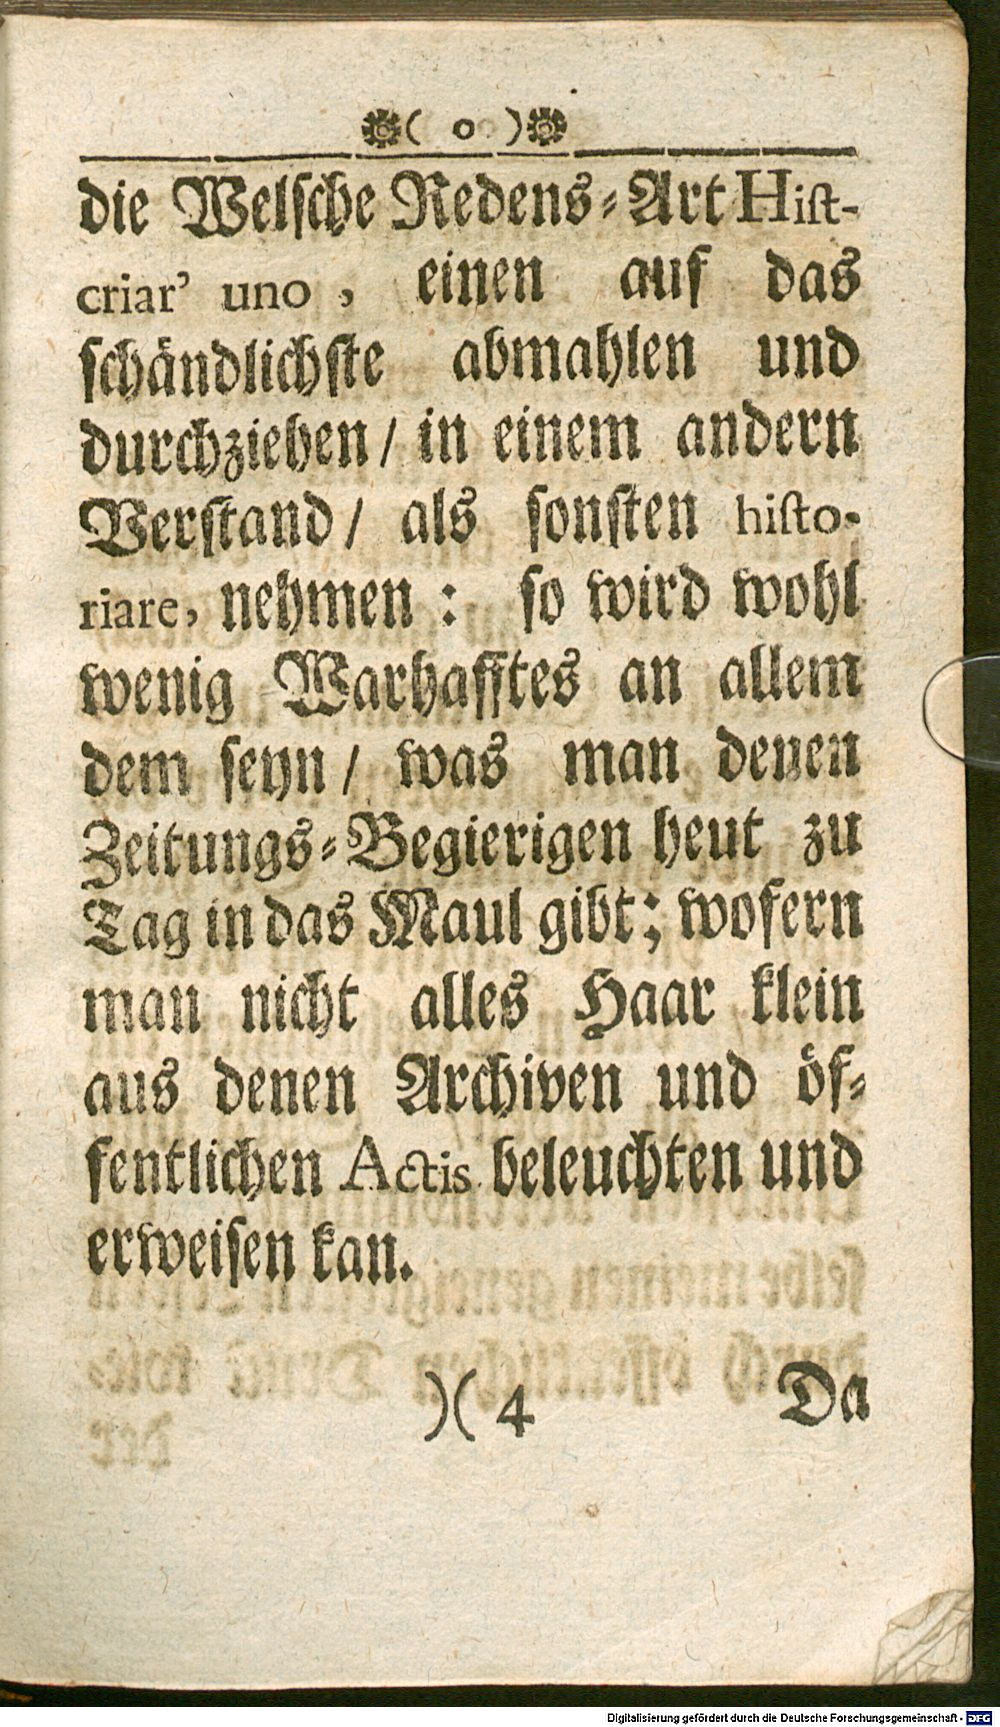 ( o )
die Welsche Redens-Art Hist-
criar' uno, einen auf das
schändlichste abmahlen und
durchziehen / in einem andern
Verstand / als sonsten histo-
riare, nehmen: so wird wohl
wenig Warhafftes an allem
dem seyn / was man denen
Zeitungs-Begierigen heut zu
Tag in das Maul gibt; wofern
man nicht alles Haar klein
aus denen Archiven und öf-
fentlichen Actis beleuchten und
erweisen kan.
)( 4 Da
Digitalisierung gefördert durch die Deutsche Forschungsgemeinschaft - DFG